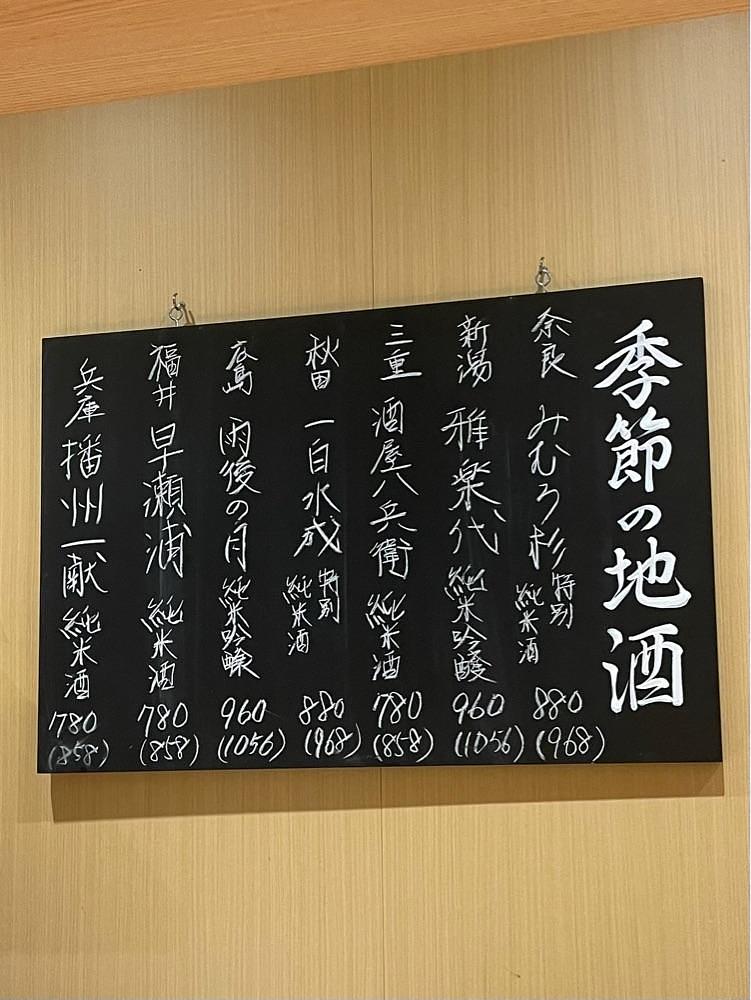 季節の地酒
奈良 みむろ杉 特別純米酒 880 (968)
新潟 雅楽代 純米吟醸 960 (1056)
三重 酒屋八兵衛 純米酒 780 (858)
秋田 一白水成 特別純米酒 880 (968)
広島 雨後の月 純米吟醸 960 (1056)
福井 早瀬浦 純米酒 780 (858)
兵庫 播州一献 純米酒 780 (858)